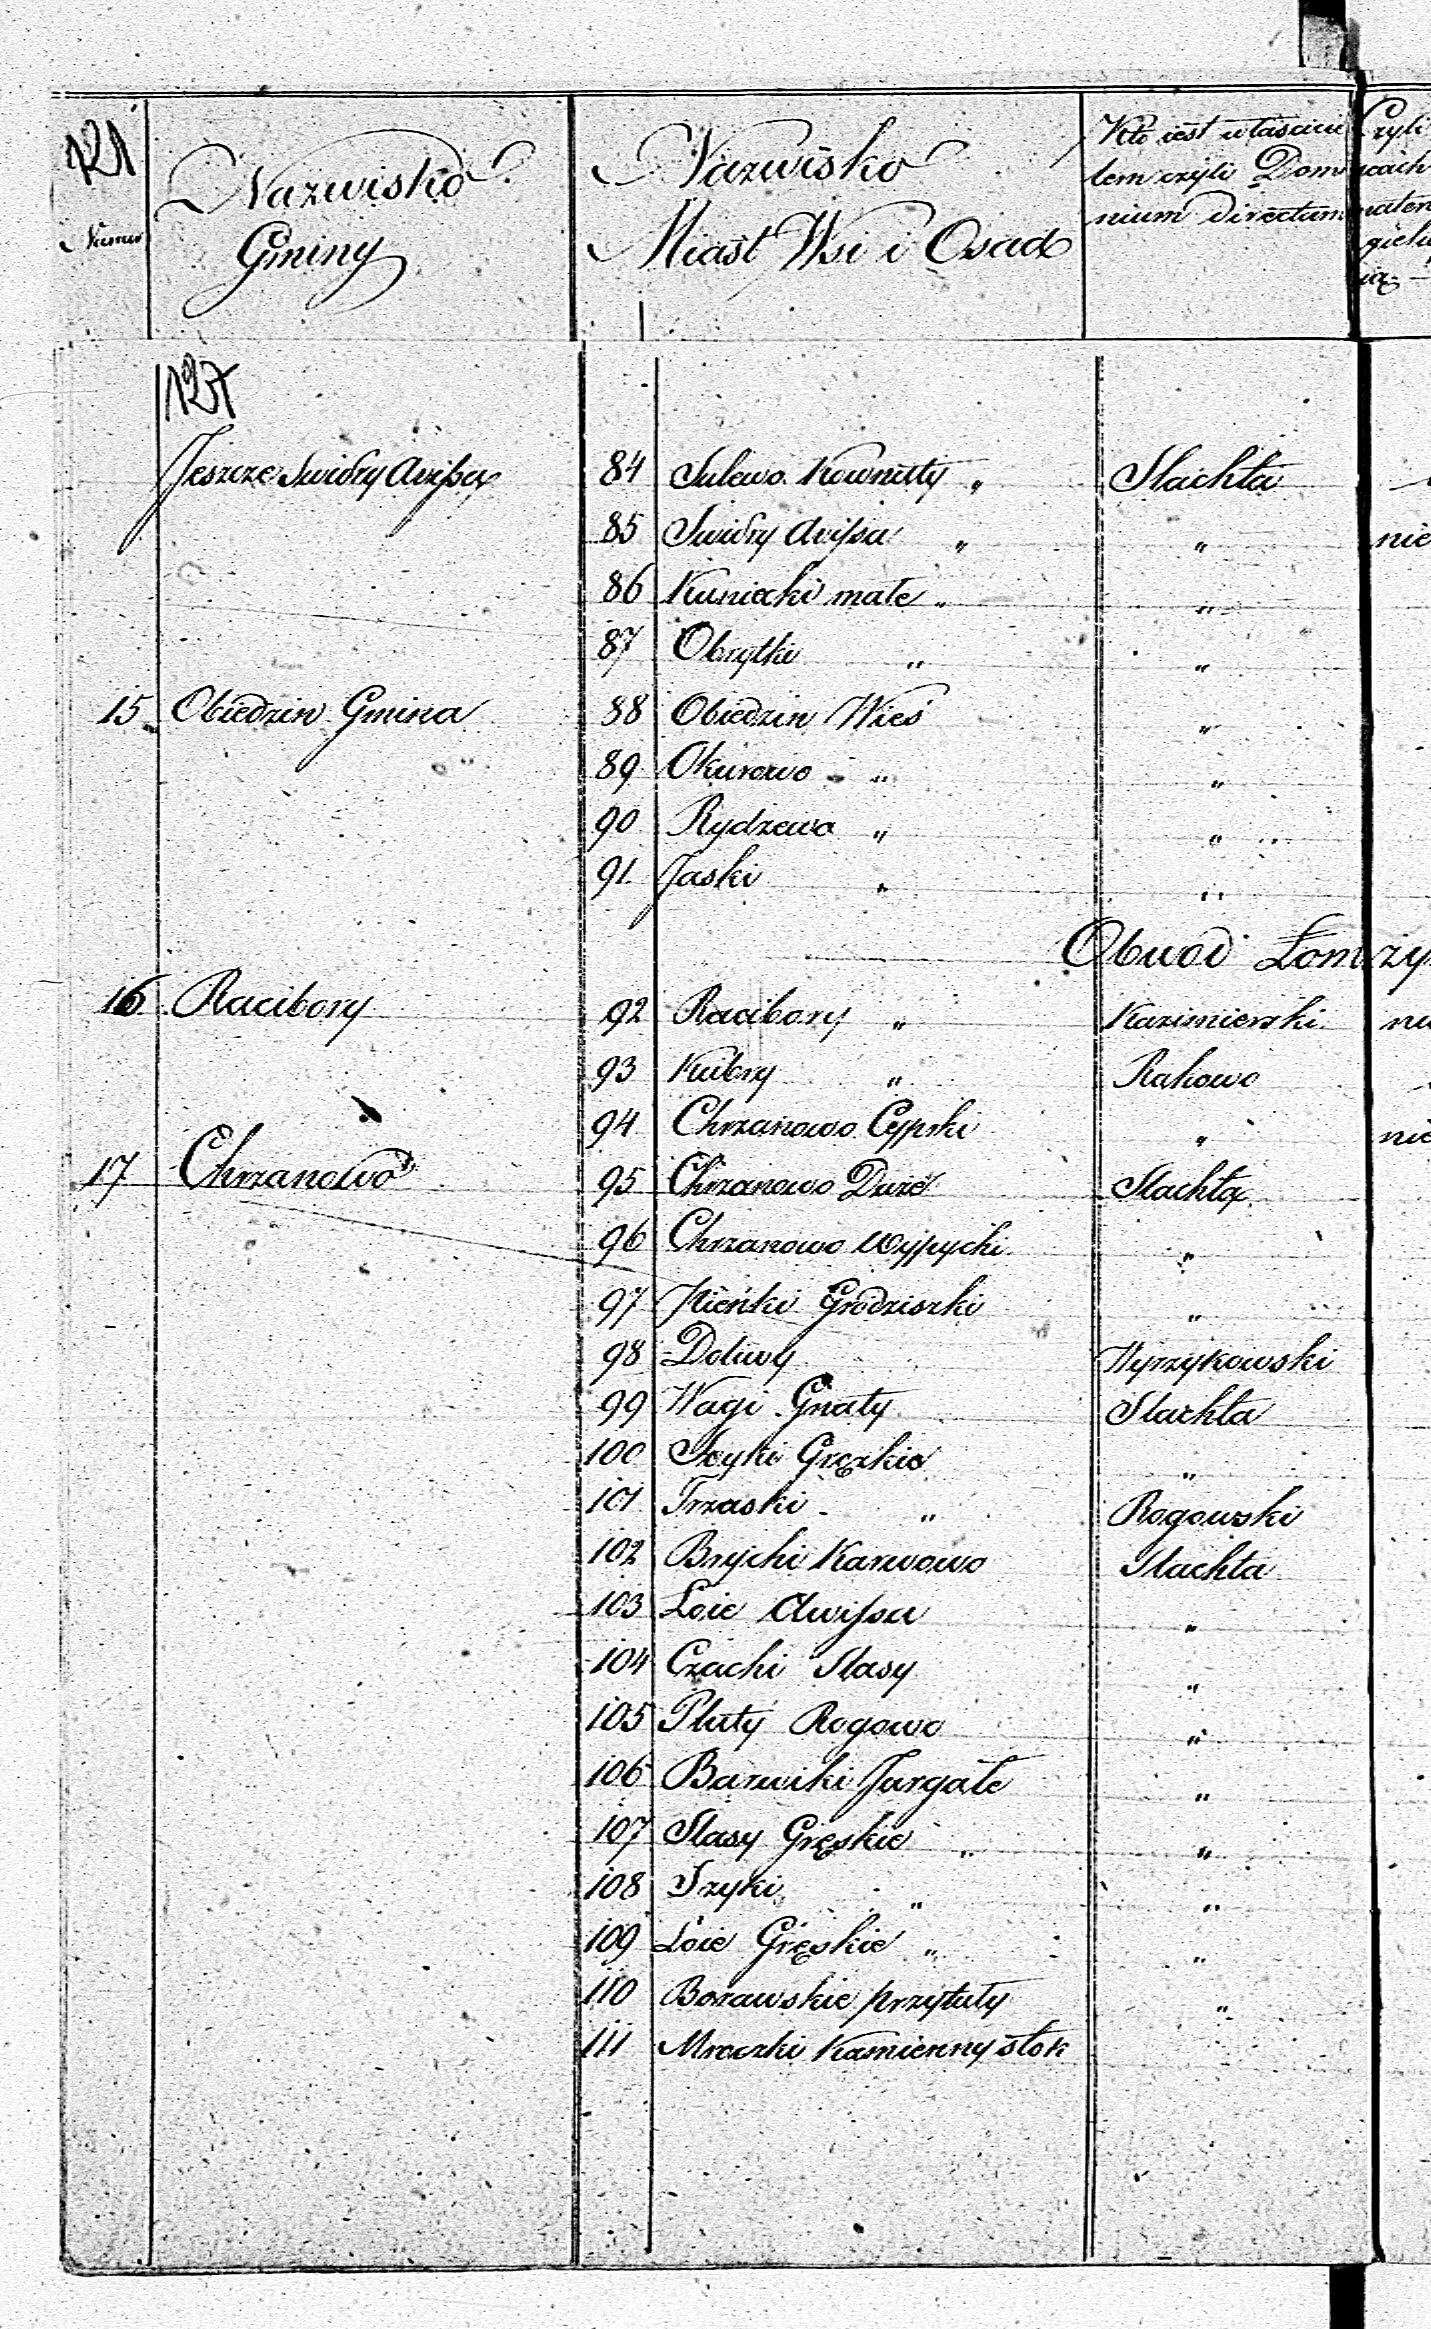 121
Numer
Nazwisko
Gminy
Nazwisko
Miast Wsi i Osad
Kto iest właścicie
lem czyli Domi
nium directum
Czyli
127
Jeszcze Swidry Awissa 84 Sulewo Kownatty " Slachta
85 Swidry Avissa " " nie
86 Kuniecki małe " "
87 Obrytki " "
15 Obiedzin Gmina 88 Obiedzin Wieś "
89 Okurowo " "
90 Rydzewo " "
91 Jaski " "
Obwod Łomży
16 Racibory 92 Racibory " Kazimierski
93 Kubry " Rakowo
94 Chrzanowo Cypski " nie
17 Chrzanowo 95 Chrzanowo Duże Slachta
96 Chrzanowo Wypychi "
97 Mieńki Grodziszki "
98 Doliwy Wyrzykowski
99 Wagi Gnaty Slachta
100 Gręzkie "
101 Trzaski " Rogowski
102 Brychi Karwowo Slachta
103 Loie Awissa "
104 Czachi Stasy "
105 Pluty Rogowo "
106 Barwiki Jurgałe "
107 Slasy Gręskie " "
108 Szyki " "
109 Loie Gręskie " "
110 Borawskie przytuły "
111 Mroczki Kamienny stok